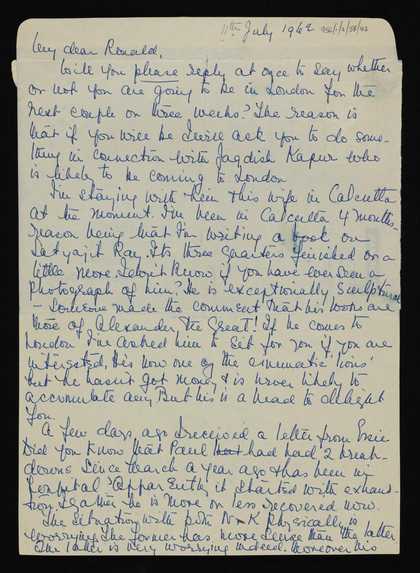 11th July 1962
My dear Ronald,
Will you please reply at once to say whether
or not you are going to be in London for the
next couple or three weeks? The reason is
that if you will be I will ask you to do some-
thing in connection with Jagdish Kapur who
is likely to be coming to London
I'm staying with them this wife in Calcutta
at the moment. I've been in Calcutta 4 months -
reason being that I'm writing a book on
Satyajit Ray. Its three quarters finished or a
little more. I don't know if you have ever seen a
photograph of him? He is exceptionally sculptural
- someone made the comment that his looks are
those of Alexander the Great! If he comes to
London I've asked him to sit for you if you are
interested, he's now one of the cinematic 'lions'
but he hasn't got money & is never likely to
accumulate any. But his is a head to delight
you.
A few days ago I received a letter from
Did you know that Paul had had 2 break-
downs since March a year ago & has been in
hospital? Apparently it started with exhaus-
tion. I gather he is more or less recovered now.
The situation with both N & K physically is
worrying. The former has more sense than the latter
One latter is very worrying indeed. Moreover his